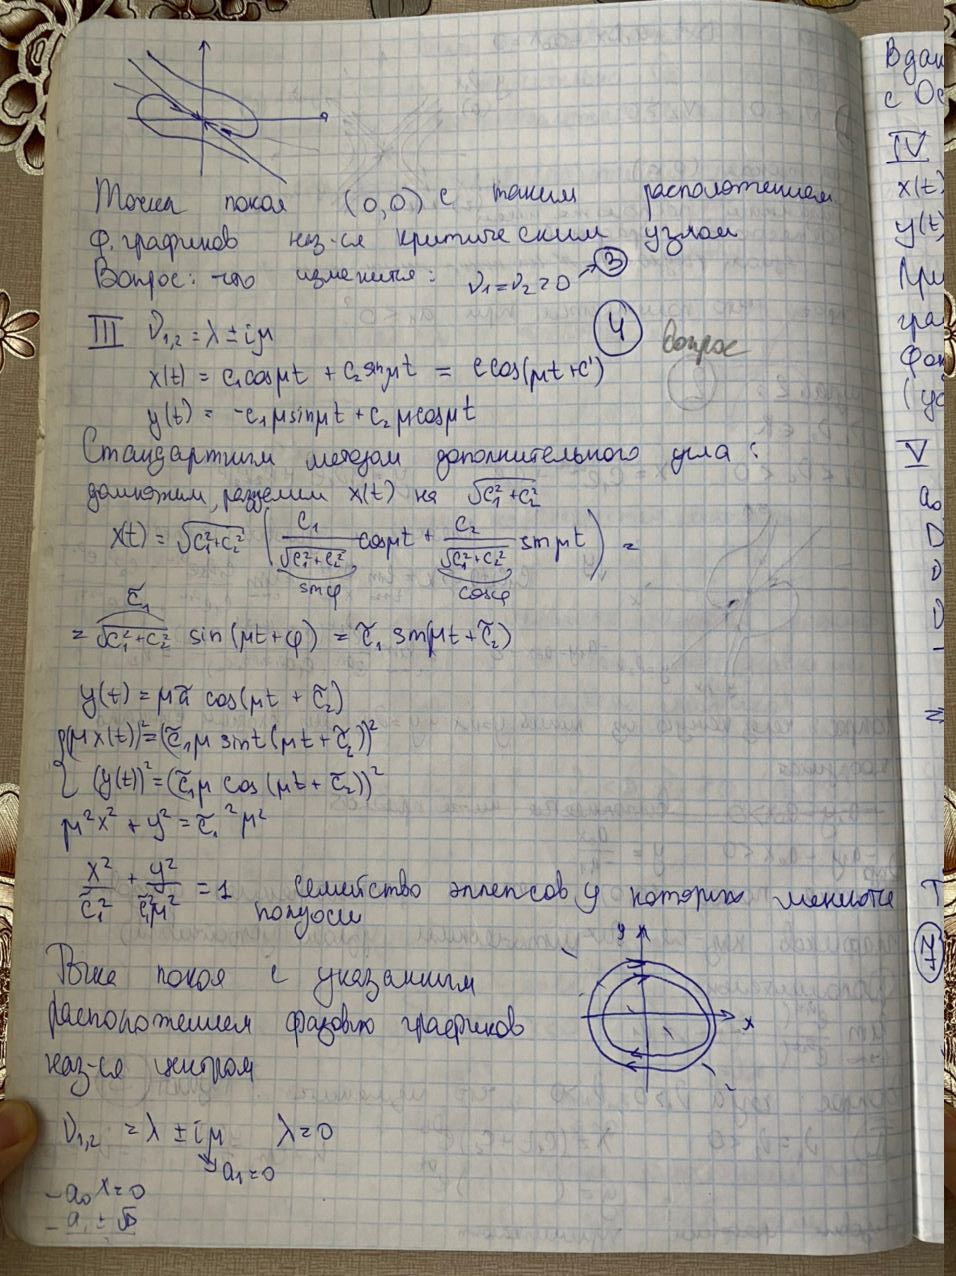 Точка покоя (0,0) с таким расположением
ф. графиков наз-ся критическим узлом
Вопрос: что изменится: ν₁=ν₂>0 → ③
III ν₁,₂ = λ ± iμ ④ Вопрос
x(t) = c₁cosμt + c₂sinμt = c cos(μt+c')
y(t) = -c₁μsinμt + c₂μcosμt
Стандартным методом дополнительного угла:
домножим, разделим x(t) на √(c₁²+c₂²)
x(t) = √(c₁²+c₂²) (c₁/√(c₁²+c₂²) cosμt + c₂/√(c₁²+c₂²) sinμt) =
sinφ cosφ
c̃₁
= √(c₁²+c₂²) sin(μt+φ) = c̃₁ sin(μt+c̃₂)
y(t) = μc̃ cos(μt + c̃₂)
{(μx(t))² = (c̃₁μ sint(μt+c̃₂))²
(y(t))² = (c̃₁μ cos(μt + c̃₂))²
μ²x² + y² = c̃₁²μ²
x²/c̃₁² + y²/c̃₁²μ² = 1 семейство эллепсов у которых меняются
полуоси
y
x
покоя с указанным
расположением фазовых графиков
наз-ся центром
ν₁,₂ = λ ± iμ λ=0
a₁=0
-a₀x=0
-a₁±√D
Вдан
с Ос
IV
x(t)
y(t)
При
гра
Фок
(ус
V
a₀
D